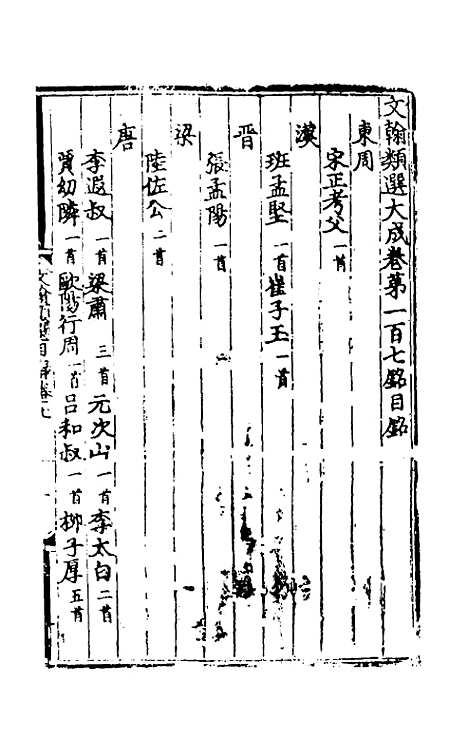 文翰類選大成卷第一百七銘目銘
東周
宋正考父一首
漢
班孟堅一首崔子玉一首
晋
張孟陽一首
梁
陸佐公二首
唐
李遐叔一首梁肅三首元次山一首李太白二首
賈幼隣一首歐陽行周一首吕和叔一首栁子厚五首